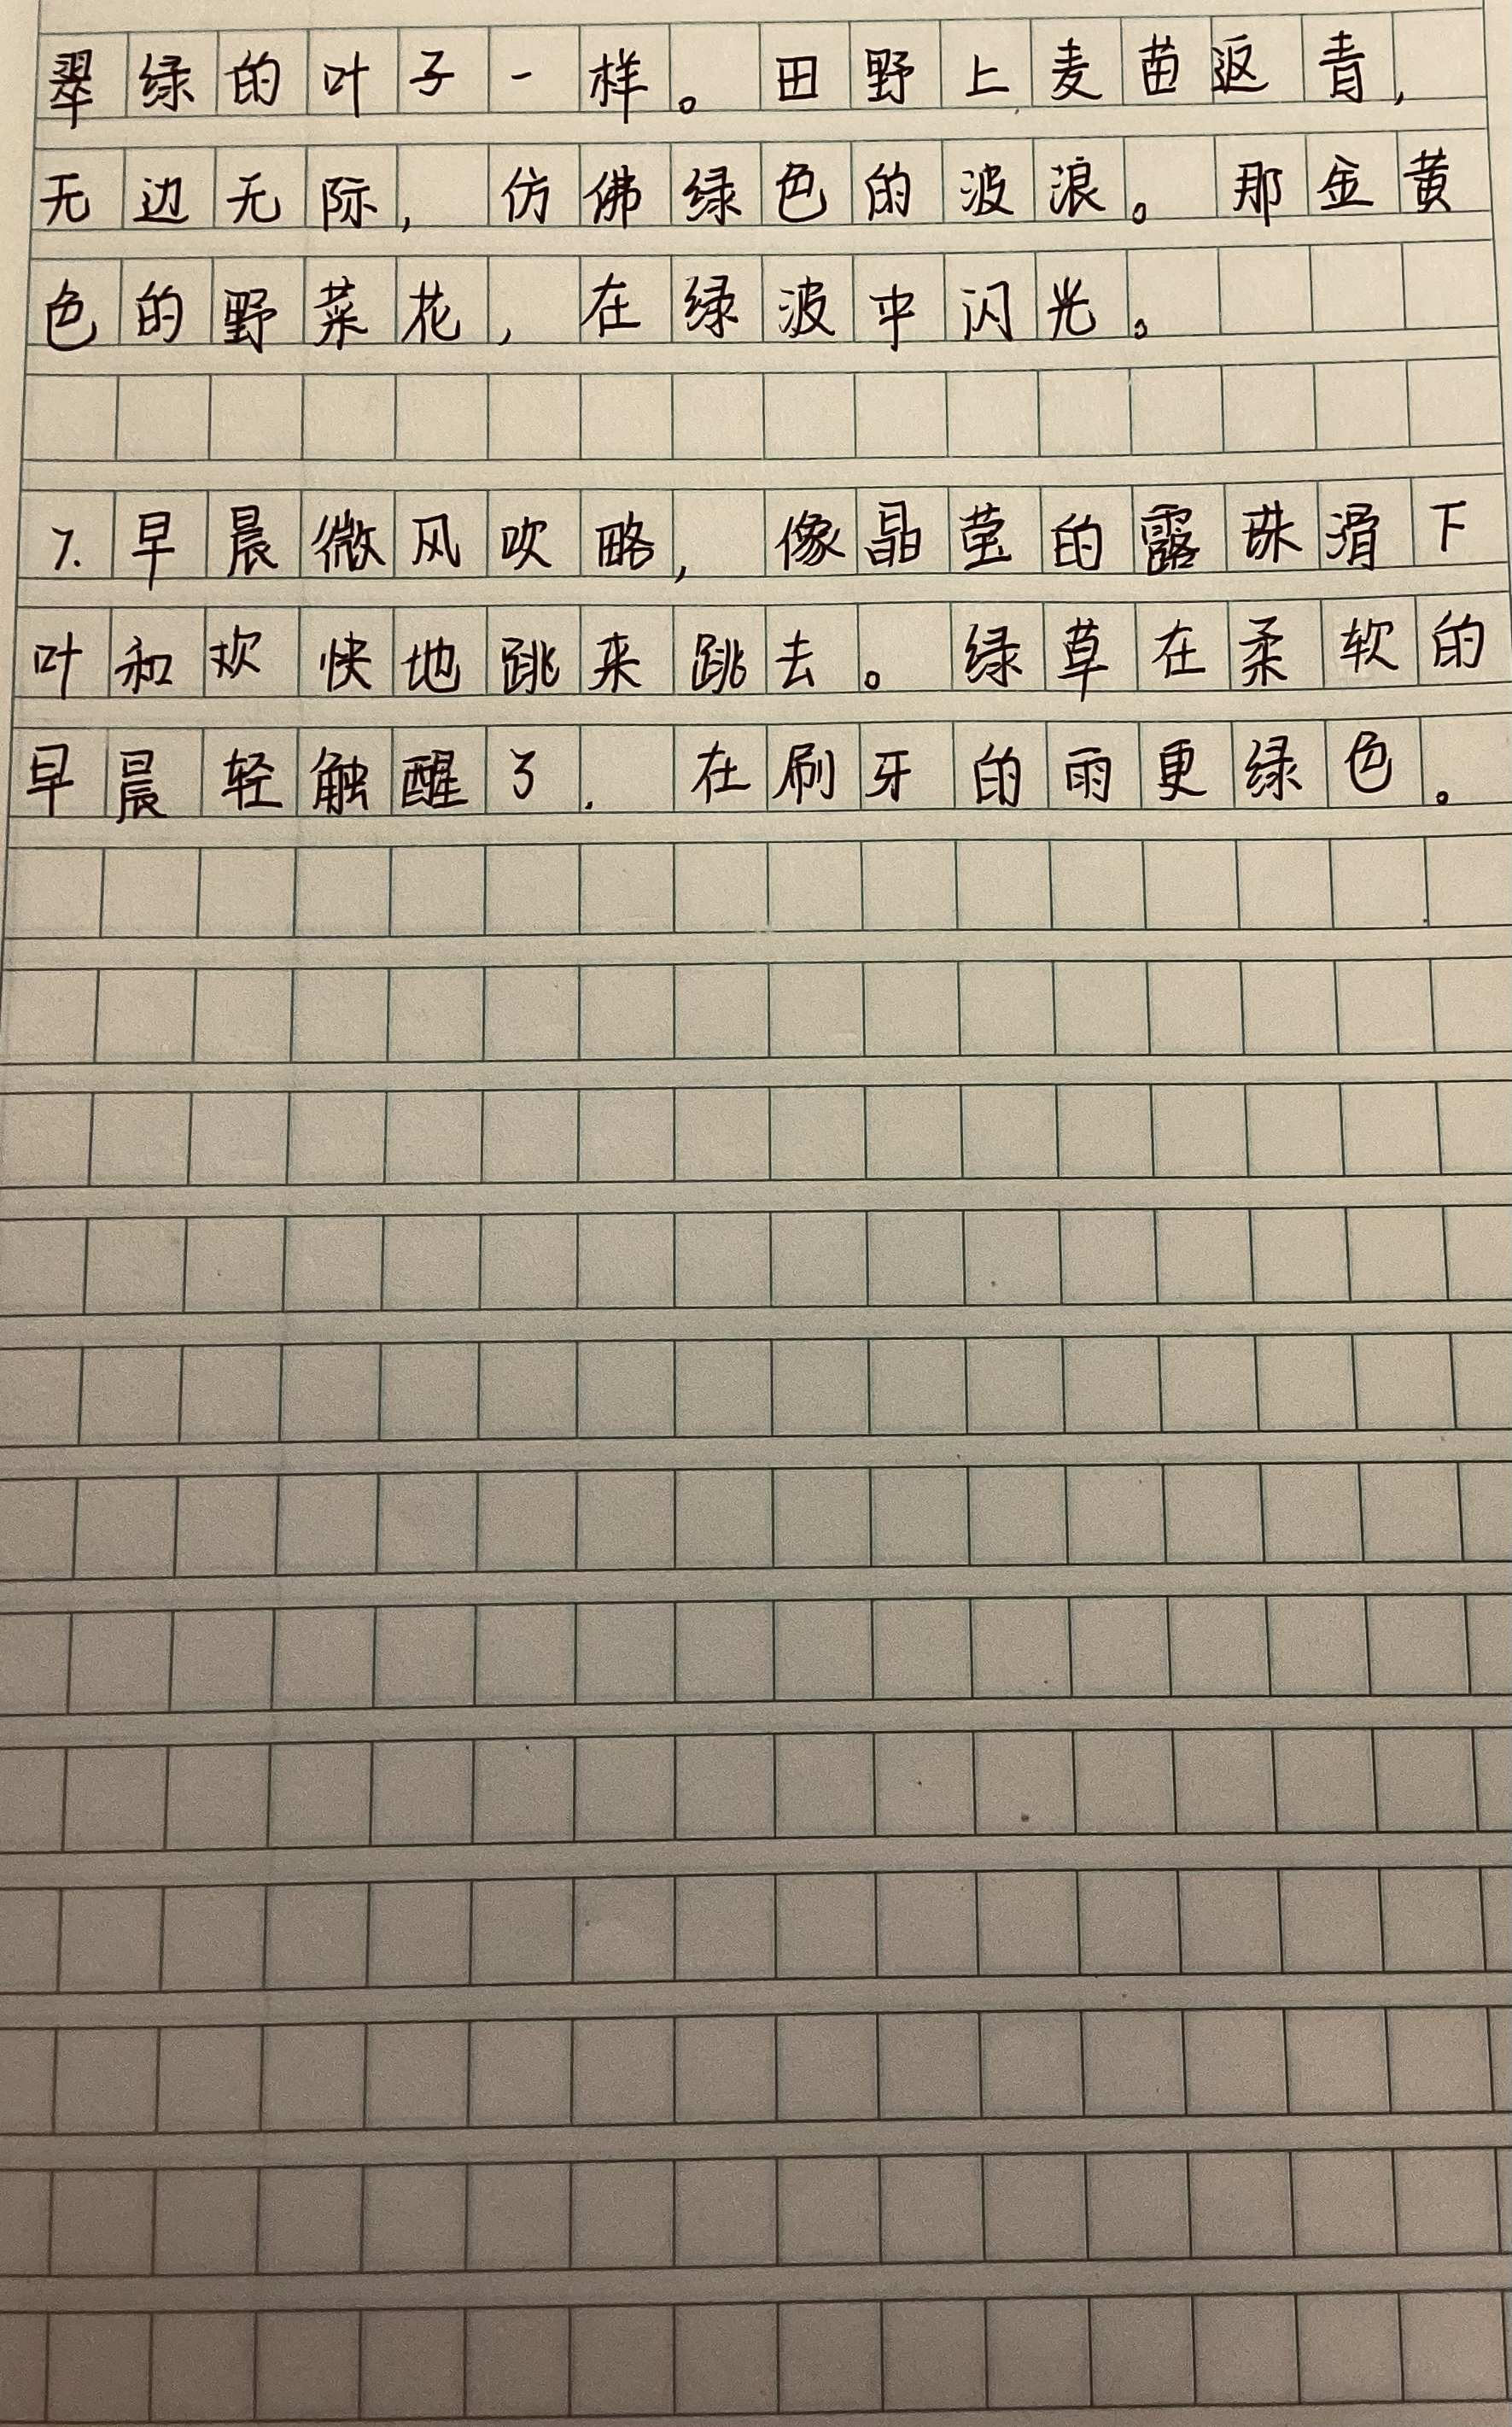 翠绿的叶子一样。田野上麦苗返青,
无边无际,仿佛绿色的波浪。那金黄
色的野菜花,在绿波中闪光。
7.早晨微风吹略,像晶莹的露珠滑下
叶和欢快地跳来跳去。绿草在柔软的
早晨轻触醒了.在刷牙的雨更绿色。